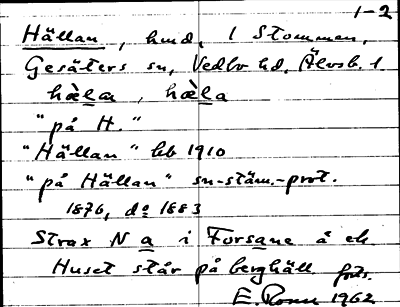 1-2
Hällan, hmd, 1 Stommen,
Gesäters sn, Vedbo hd, Älvsb. l.
hæ̀lan, hæ̀la
"på H."
"Hällan" hb 1910
"på Hällan" sn-stäm.-prot.
1876, do 1883
Strax N a i Forsane å ek
Huset står på berghäll forts.
E. 1962